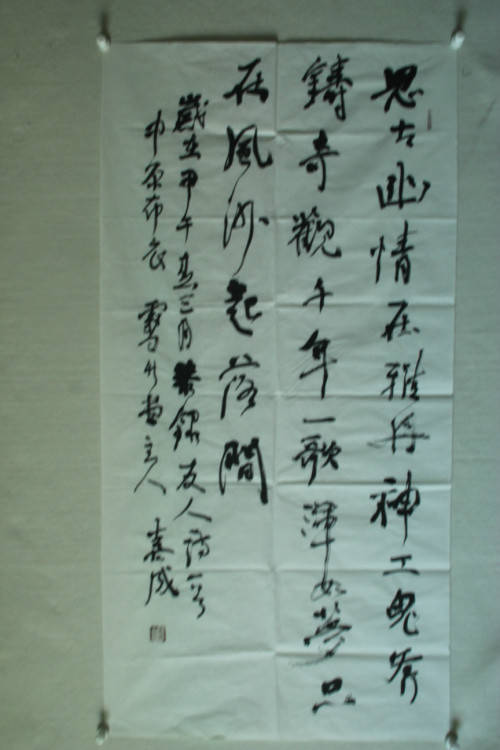 思古幽情在雅丹神工鬼斧
鑄奇觀千年一歌渾如夢只
在風沙起落間
歲在甲午年三月錄友人詩一首
中原布衣 竹堂主人 喜成